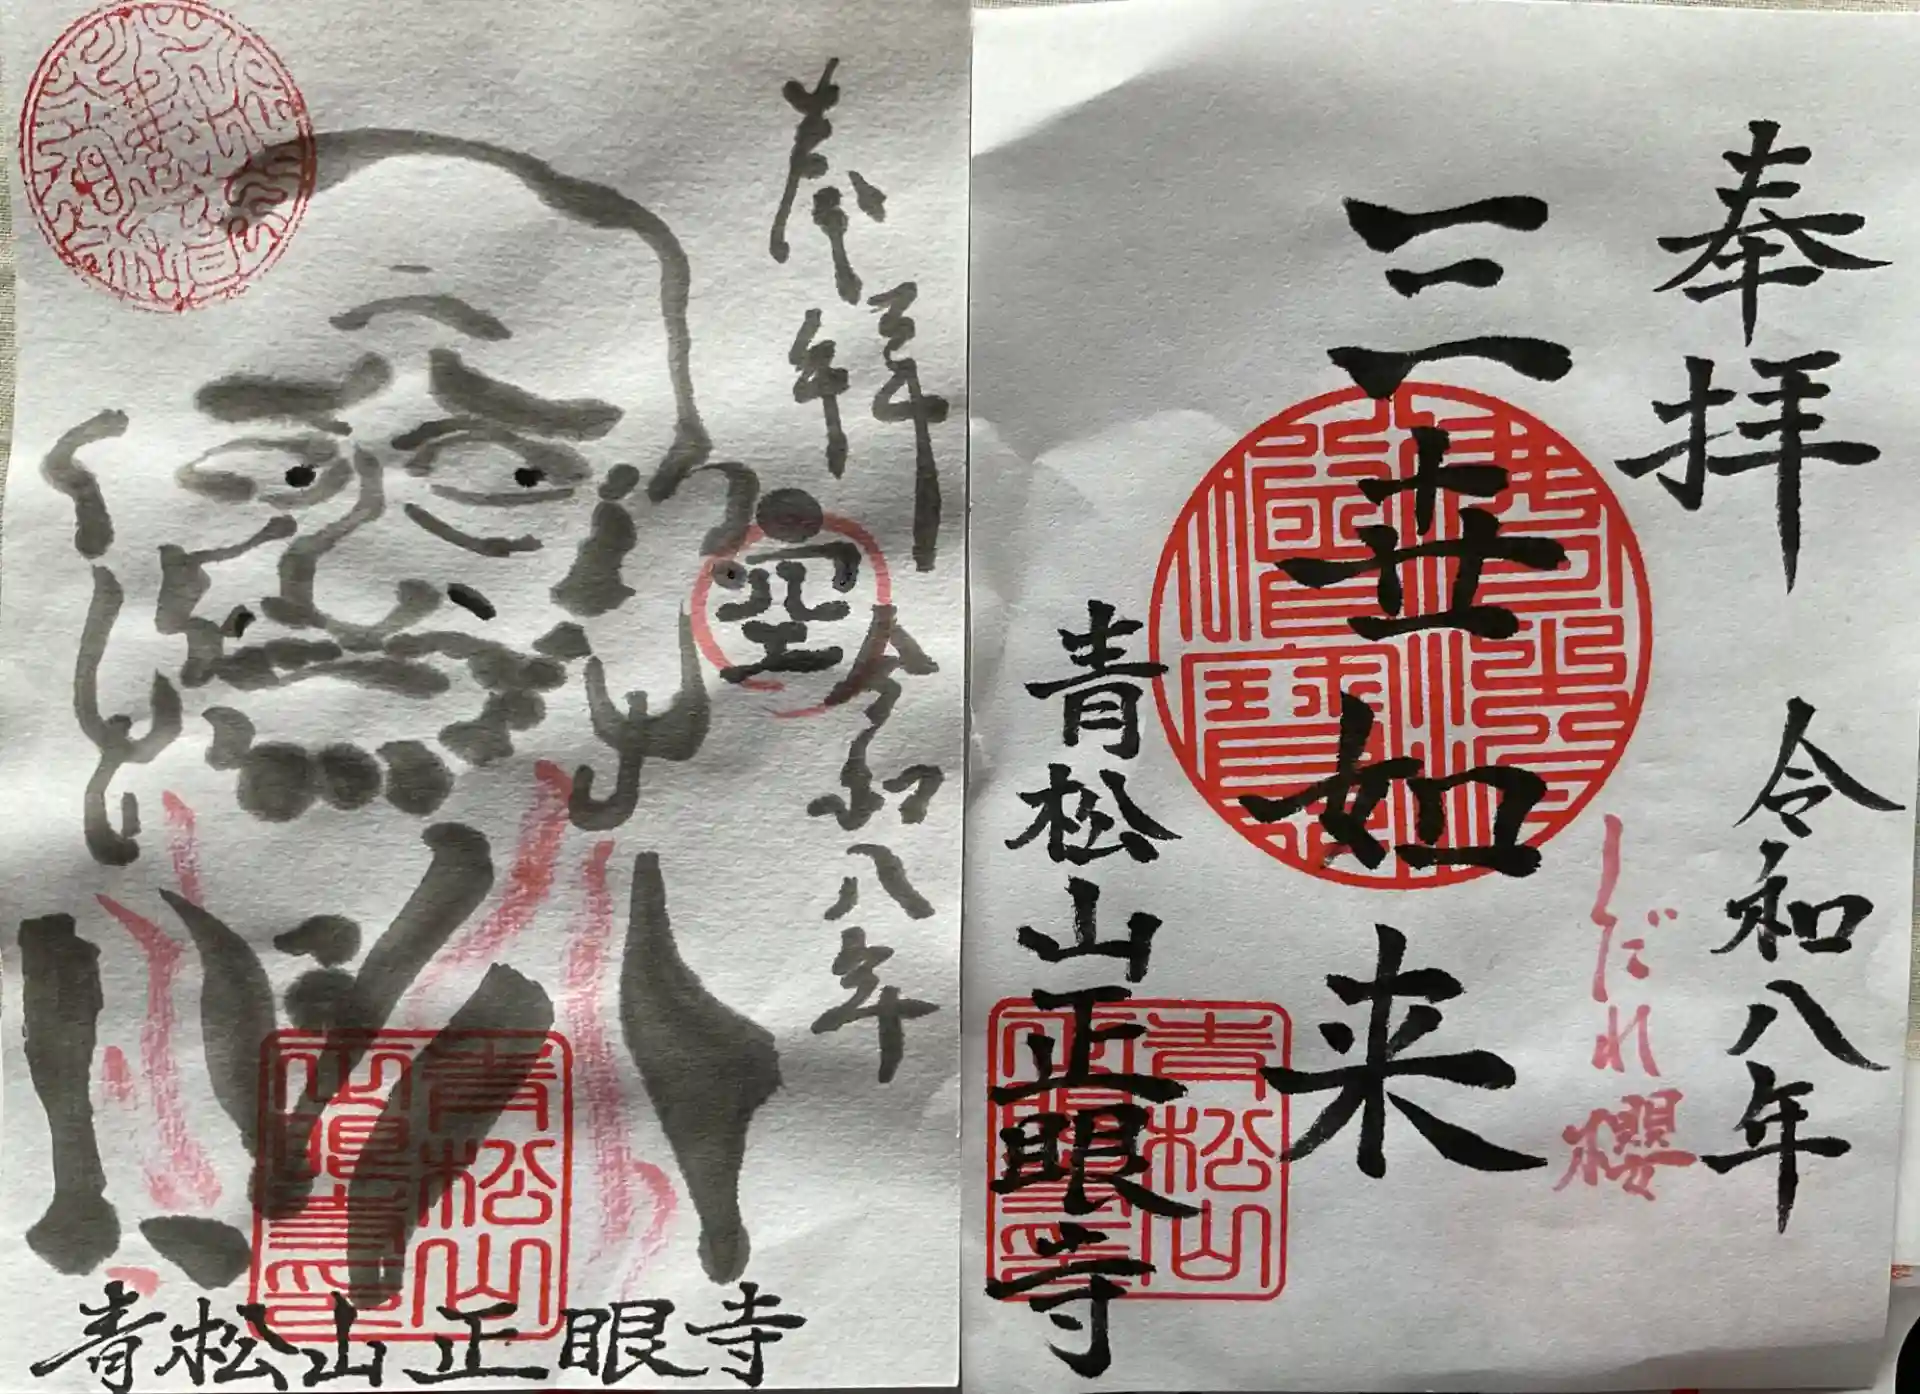 奉拝
令和八年
空
青松山正眼寺
青松山
正眼寺印
奉拝
令和八年
しだれ櫻
三世如来
佛法僧寶
青松山正眼寺
青松山
正眼寺印